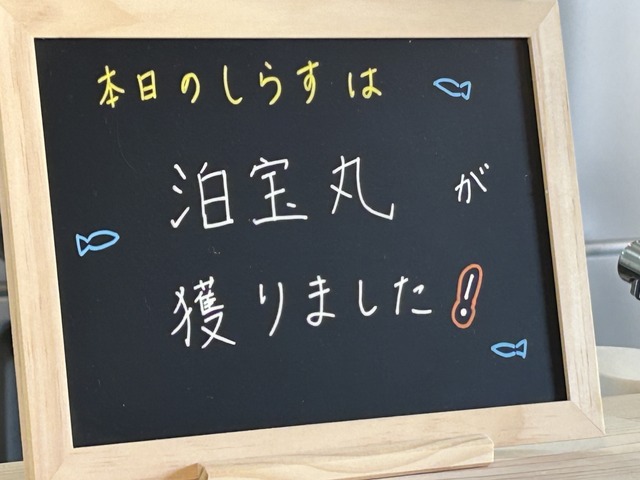 本日のしらすは
泊宝丸 が
獲りました!